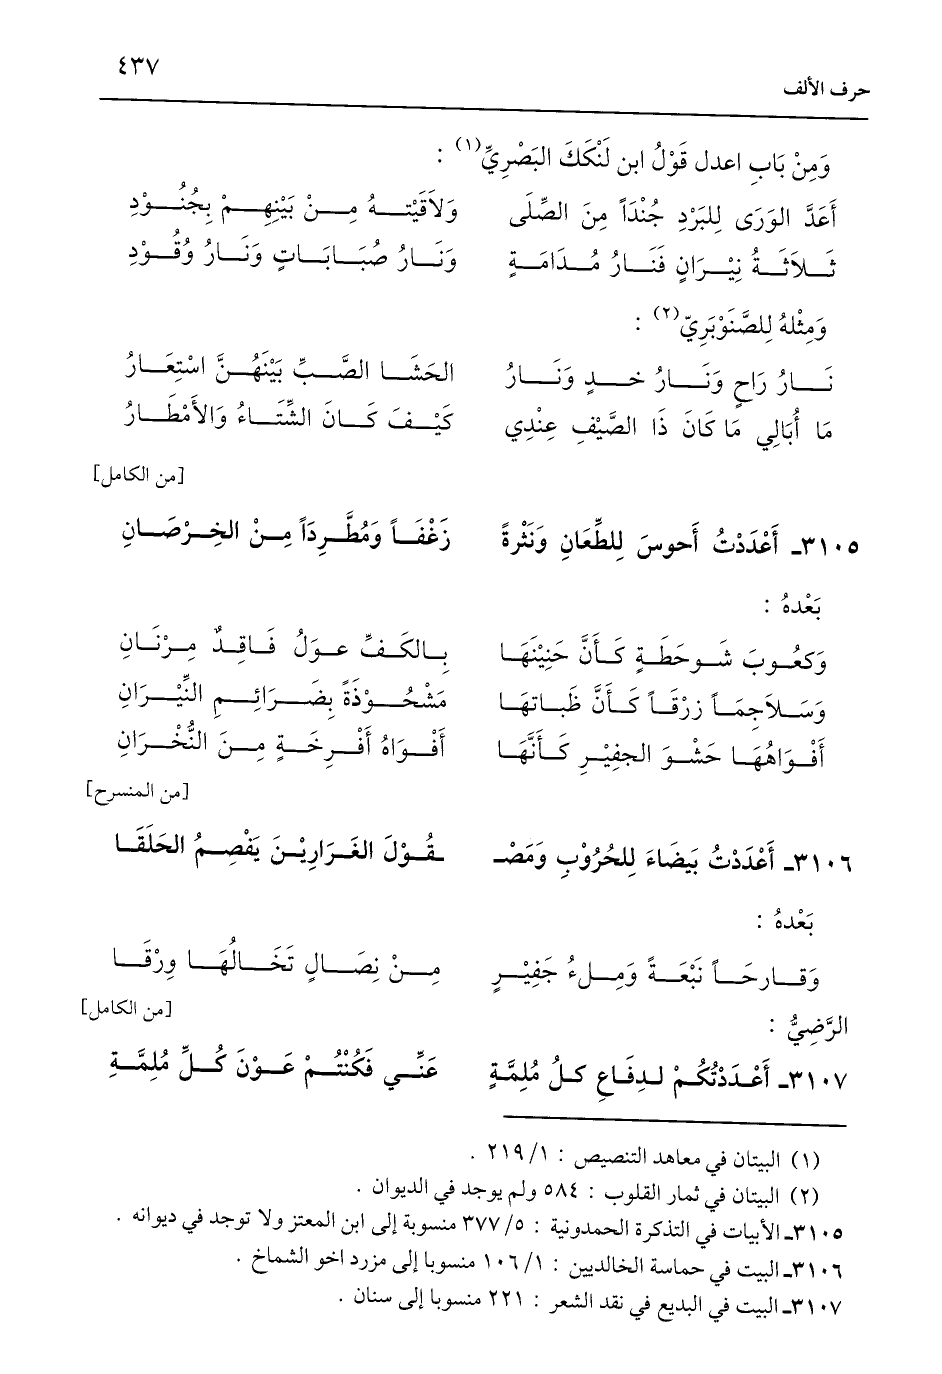 ٤٣٧
حرف الألف
وَمِنْ بَابِ اعدل قَوْلُ ابن لَنْكَكَ البَصْرِيِّ(١) :
أَعَدَّ الوَرَى لِلبَرْدِ جُنْداً مِنَ الصِّلَى وَلاَقَيْتهُ مِنْ بَيْنِهِمْ بِجُنُودِ
ثَلاَثَةُ نِيْرَانٍ فَنَارُ مُدَامَةٍ وَنَارُ صُبَابَاتٍ وَنَارُ وُقُوْدِ
وَمِثْلهُ لِلصَّنَوْبَرِيّ(٢) :
نَارُ رَاحٍ وَنَارُ خدٍ وَنَارُ الحَشَا الصَّبِّ بَيْنَهُنَّ اسْتِعَارُ
مَا أُبَالِي مَا كَانَ ذَا الصَّيْفِ عِنْدِي كَيْفَ كَانَ الشِّتَاءُ وَالأَمْطَارُ
[من الكامل]
٣١٠٥ـ أَعْدَدْتُ أَحوسَ لِلطِّعَانِ وَنَثْرةً زَغْفَاً وَمُطَّرِدَاً مِنْ الخِرْصَانِ
بَعْدهُ :
وَكعُوبَ شَوحَطَةٍ كَأَنَّ حَنِيْنَهَا بِالكَفِّ عوَلُ فَاقِدٌ مِرْنَانِ
وَسَلاَجِمَاً زرْقَاً كَأَنَّ ظَباتهَا مَشْحُوْذَةً بِضَرَائِمِ النِّيْرَانِ
أَفْوَاهُهَا حَشْوَ الجفِيْرِ كَأَنَّهَا أَفْوَاهُ أَفْرِخَةٍ مِنَ النُّخْرَانِ
[من المنسرح]
٣١٠٦ـ أَعْدَدْتُ بَيضَاءَ لِلحُرُوْبِ وَمَصْـ ـقُوْلَ الغَرَارِيْنَ يَفْصِمُ الحَلَقَا
بَعْدهُ :
وَقَارحَاً نَبْعَةً وَمِلءُ جَفِيْرٍ مِنْ نِصَالٍ تَخَالُهَا وِرْقَا
[من الكامل]
الرَّضِيُّ :
٣١٠٧ـ أَعْدَدْتُكُمْ لِدِفَاعِ كلُ مُلِمَّةٍ عَنِّي فَكُنْتُمْ عَوْنَ كُلِّ مُلِمَّةِ
(١) البيتان في معاهد التنصيص : ٢١٩/١ .
(٢) البيتان في ثمار القلوب : ٥٨٤ ولم يوجد في الديوان .
٣١٠٥ـ الأبيات في التذكرة الحمدونية : ٣٧٧/٥ منسوبة إلى ابن المعتز ولا توجد في ديوانه .
٣١٠٦ـ البيت في حماسة الخالديين : ١٠٦/١ منسوبا إلى مزرد اخو الشماخ .
٣١٠٧ـ البيت في البديع في نقد الشعر : ٢٢١ منسوبا إلى سنان .